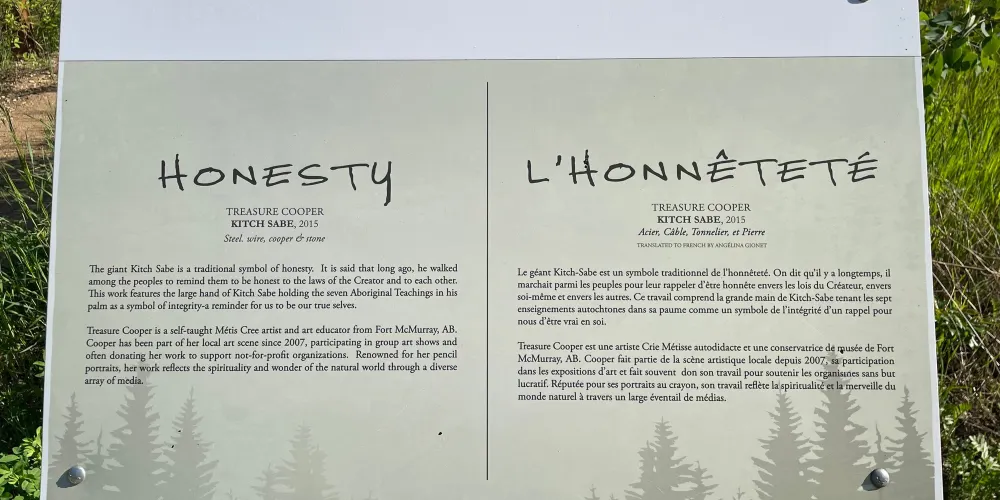 HONESTY
TREASURE COOPER
KITCH SABE, 2015
Steel, wire, cooper & stone
The giant Kitch Sabe is a traditional symbol of honesty.  It is said that long ago, he walked
among the peoples to remind them to be honest to the laws of the Creator and to each other.
This work features the large hand of Kitch Sabe holding the seven Aboriginal Teachings in his
palm as a symbol of integrity-a reminder for us to be our true selves.
Treasure Cooper is a self-taught Métis Cree artist and art educator from Fort McMurray, AB.
Cooper has been part of her local art scene since 2007, participating in group art shows and
often donating her work to support not-for-profit organizations.  Renowned for her pencil
portraits, her work reflects the spirituality and wonder of the natural world through a diverse
array of media.
L'HONNÊTETÉ
TREASURE COOPER
KITCH SABE, 2015
Acier, Câble, Tonnelier, et Pierre
TRANSLATED TO FRENCH BY ANGÉLINA GIONET
Le géant Kitch-Sabe est un symbole traditionnel de l'honnêteté. On dit qu'il y a longtemps, il
marchait parmi les peuples pour leur rappeler d'être honnête envers les lois du Créateur, envers
soi-même et envers les autres. Ce travail comprend la grande main de Kitch-Sabe tenant les sept
enseignements autochtones dans sa paume comme un symbole de l'intégrité d'un rappel pour
nous d'être vrai en soi.
Treasure Cooper est une artiste Crie Métisse autodidacte et une conservatrice de musée de Fort
McMurray, AB. Cooper fait partie de la scène artistique locale depuis 2007, sa participation
dans les expositions d'art et fait souvent  don son travail pour soutenir les organismes sans but
lucratif. Réputée pour ses portraits au crayon, son travail reflète la spiritualité et la merveille du
monde naturel à travers un large éventail de médias.